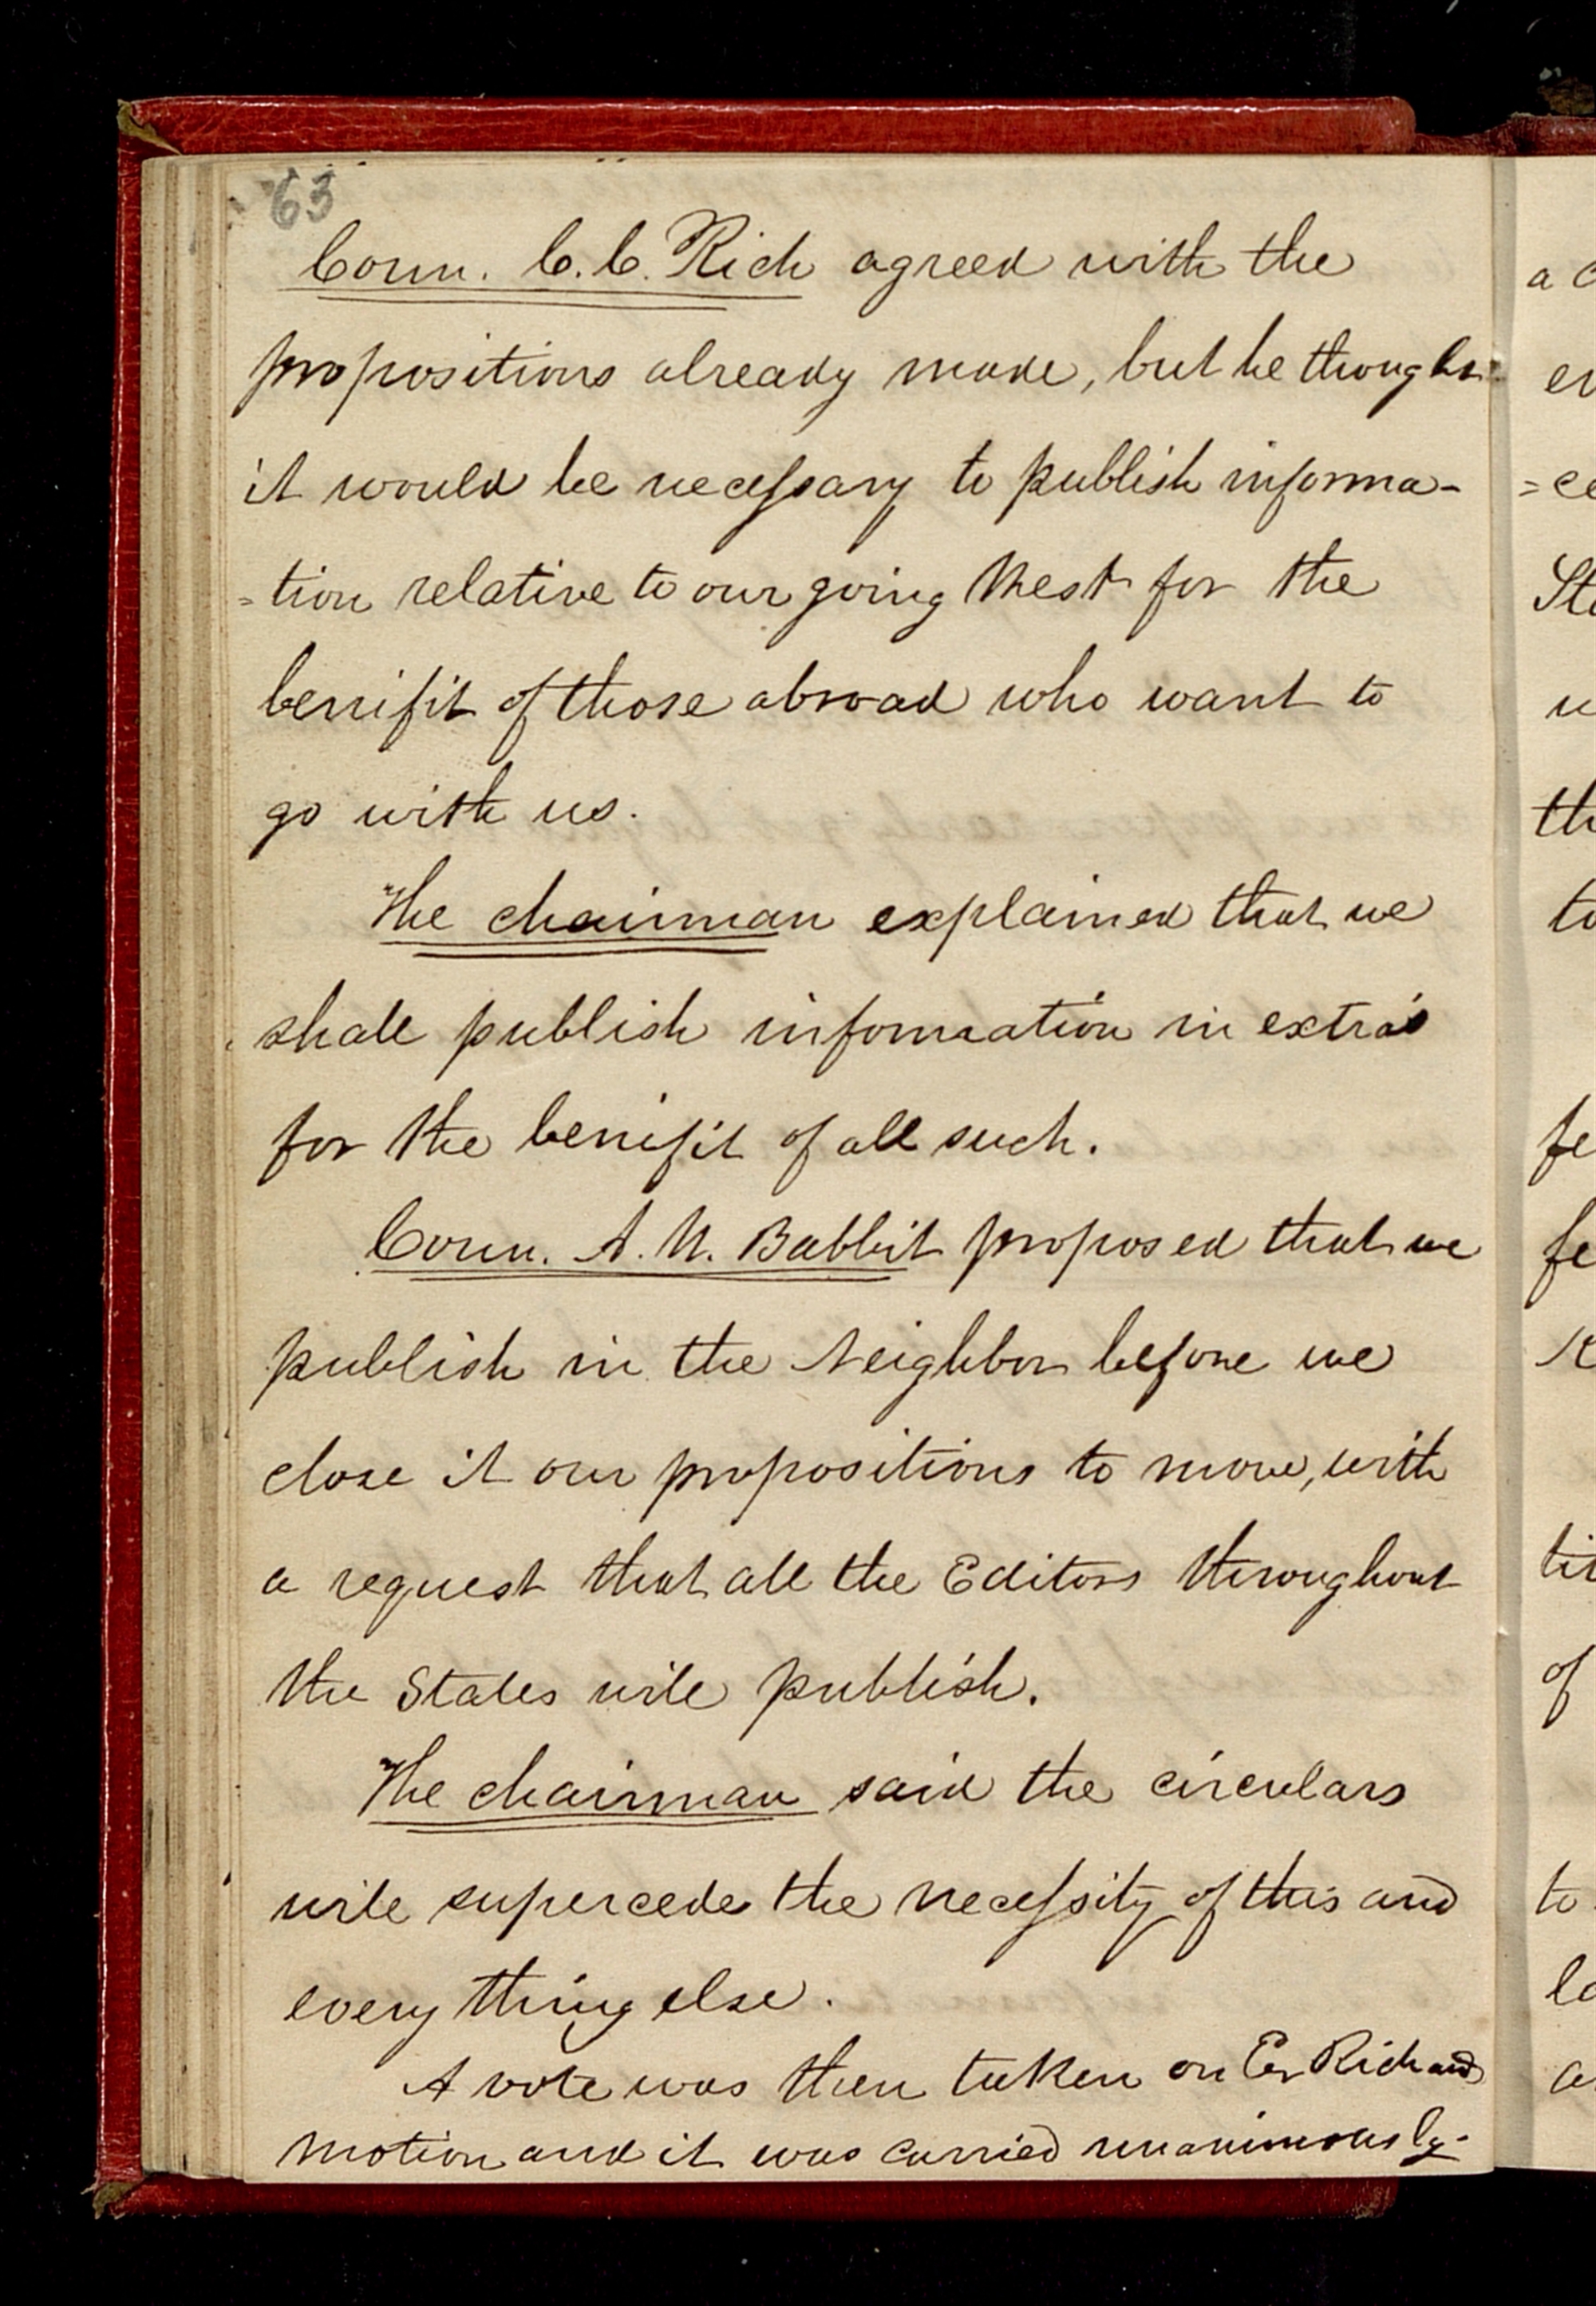 63
Coun. C. C. Rich agreed with the
propositions already made, but he thought
it would be necessary to publish informa-
=tion relative to our going West for the
benifit of those abroad who want to
go with us.
The chairman explained that we
shall publish information in extra's
for the benifit of all such.
Coun. A. W. Babbit proposed that we
publish in the Neighbor before we
close it our propositions to move, with
a request that all the Editors throughout
the States will publish.
The chairman said the circulars
will supercede the necessity of this and
every thing else.
A vote was then taken on Er Richards
motion and it was carried unanimously.
a
=ce
th
to
fe
fe
of
to